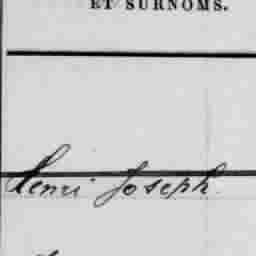 ET SURNOMS.
Henri Joseph